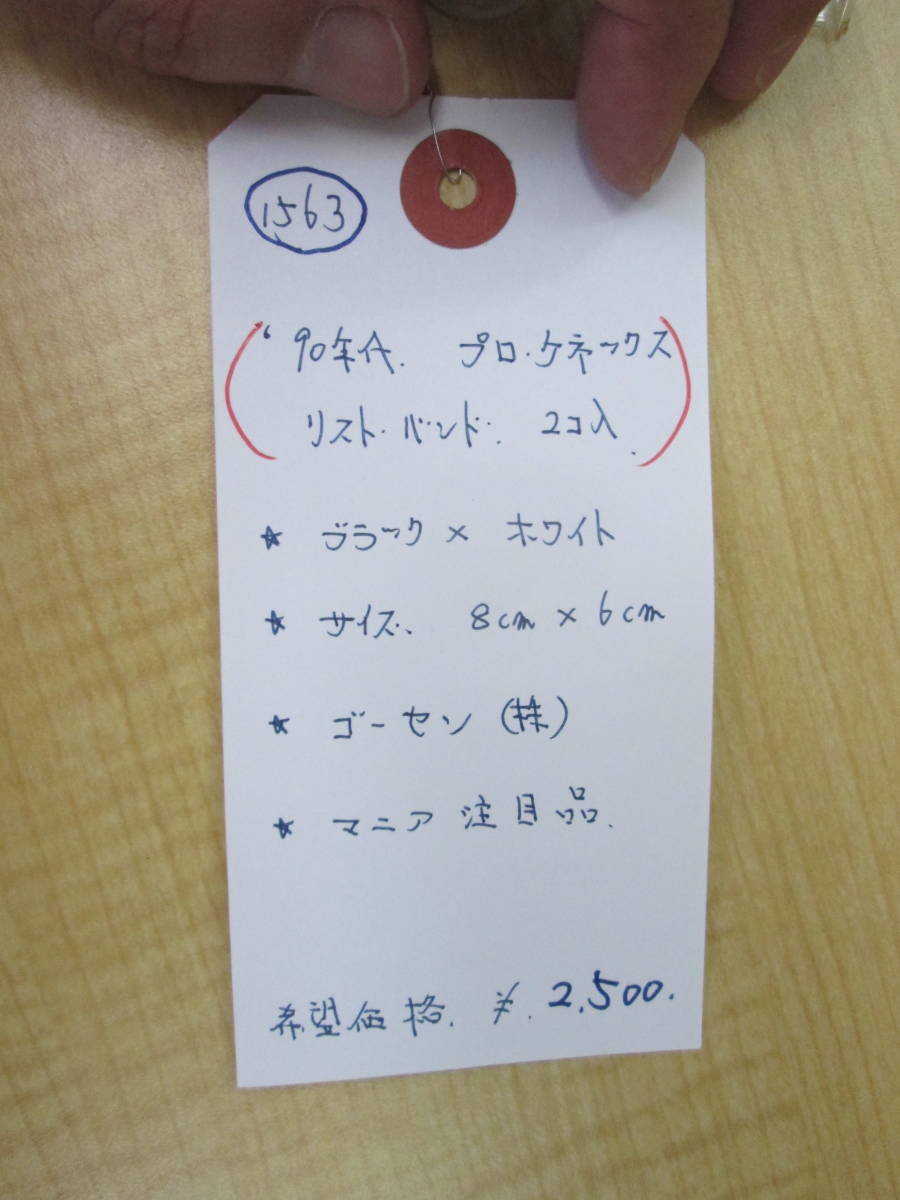 1563
'90年代. プロ・ケネックス
リスト・バンド. 2コ入.
★ ブラック × ホワイト
★ サイズ. 8cm × 6cm
★ ゴーセン (株)
★ マニア 注目品.
希望価格. ¥. 2,500.